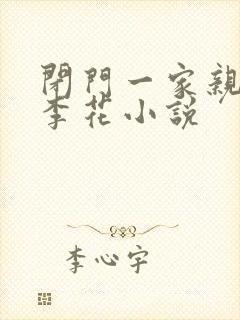 閉門一家親
李花小說
李心宇